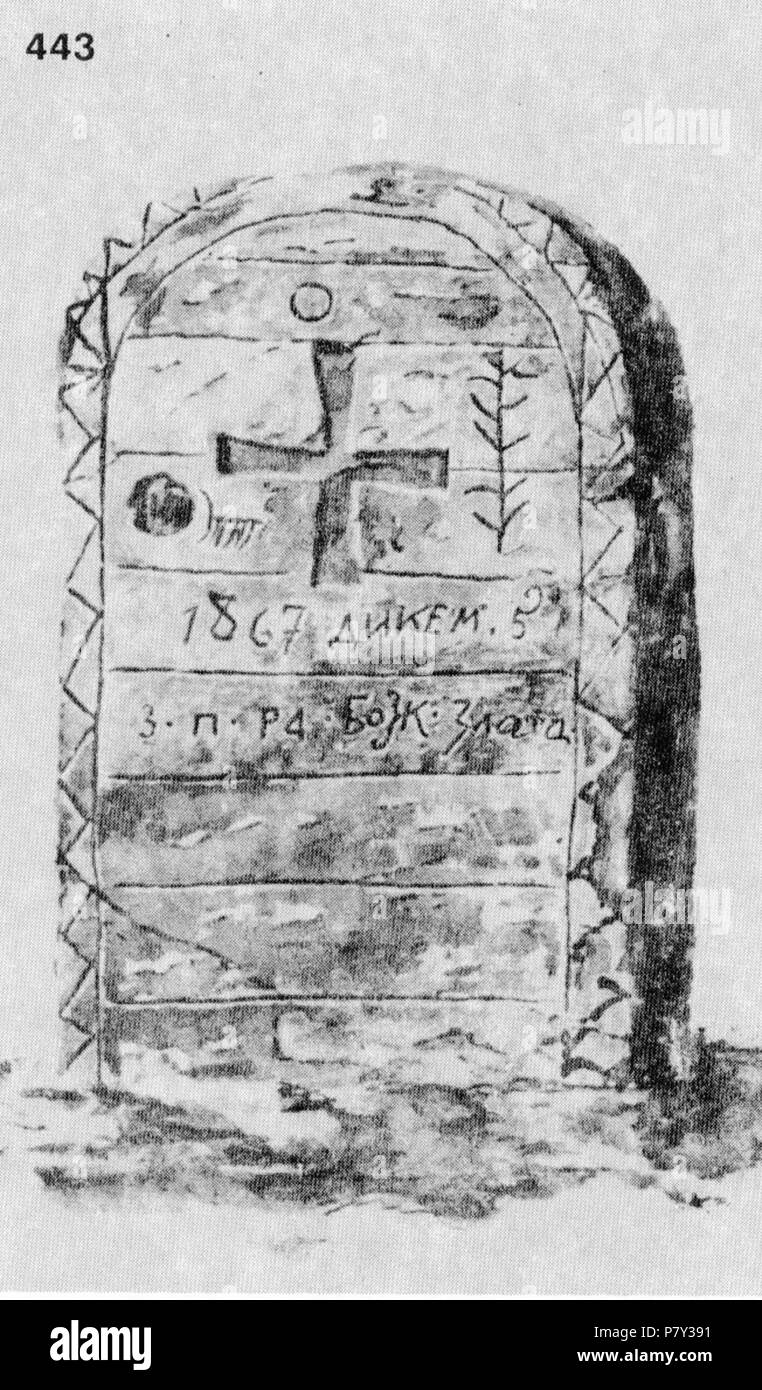 443
alamy
1867 ДИКЕМ. 5
З · П · РА · БОЗК : Злата
alamy
alamy
Image ID: P7Y391
www.alamy.com